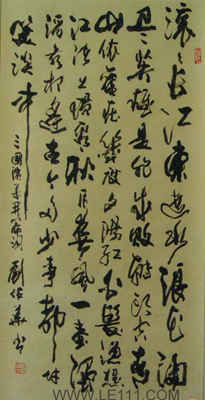 滚々长江东逝水浪花淘
尽英雄是非成败转头空青
山依旧在几度夕阳红白髮渔樵
江渚上惯看秋月春风一壶浊
酒喜相逢古今多少事都付
笑谈中
三國演义开篇词
WWW.LE111.COM